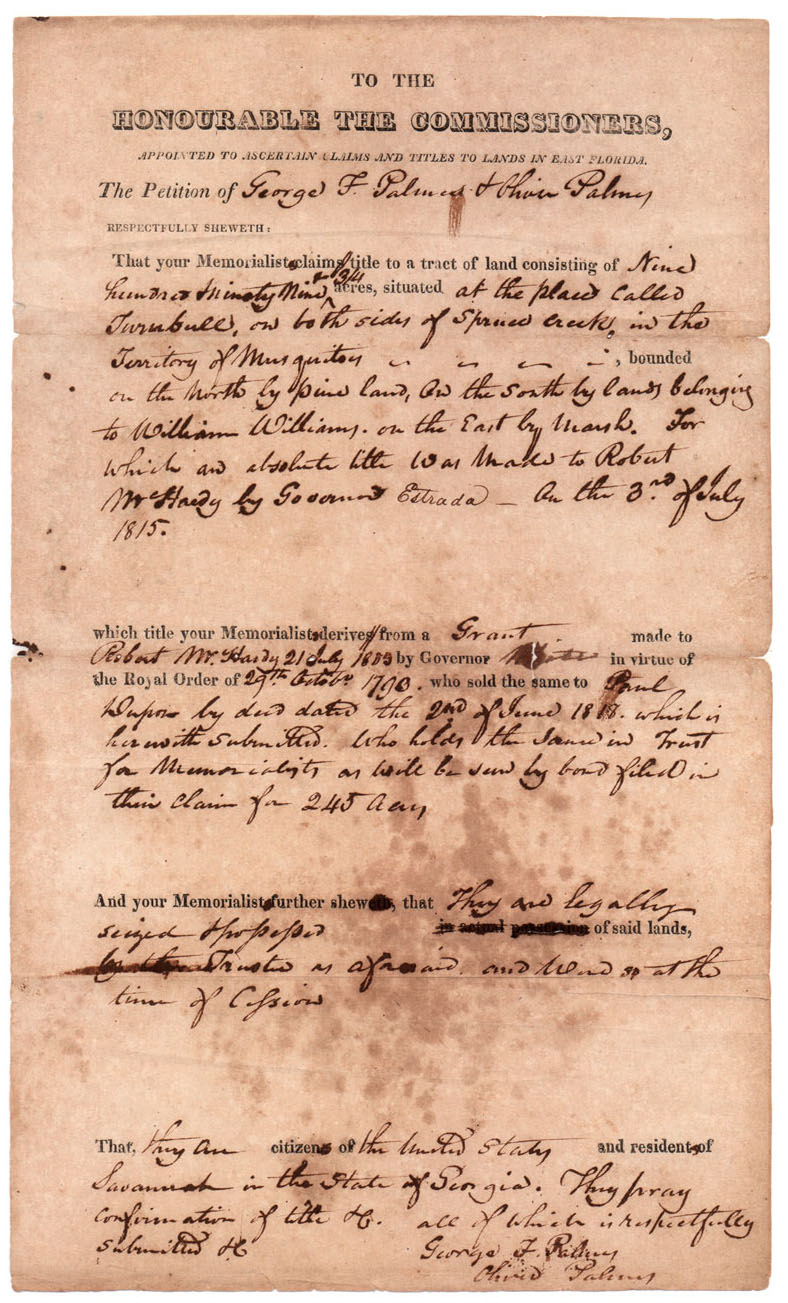 TO THE
HONOURABLE THE COMMISSIONERS,
APPOINTED TO ASCERTAIN CLAIMS AND TITLES TO LANDS IN EAST FLORIDA.
The Petition of George F. Palmes & Oliver Palmes
RESPECTFULLY SHEWETH:
That your Memorialists claims title to a tract of land consisting of Nine
hundred & ninety Nine & 3/4 acres, situated at the place called
Turnbull, on both sides of Spruce Creek, in the
Territory of Musquitoes , bounded
on the North by pine land, On the South by lands belonging
to William Williams. on the East by Marsh. For
which an absolute title Was Made to Robert
McHardy by Governor Estrada — On the 3rd of July
1815.
which title your Memorialists derives from a Grant made to
Robert McHardy 21 July 1803 by Governor White in virtue of
the Royal Order of 29th Octobr 1790. who sold the same to Paul
Dupon by deed dated the 2nd of June 1818. which is
herewith Submitted. Who holds the Same in Trust
for Memorialists as Will be seen by bond filed in
their Claim for 245 Acres
And your Memorialists further shew, that They are legally
seized & possessed in actual possession of said lands,
by the Trustee as aforesaid. and Were so at the
time of Cession
That, they are citizens of the United States and residents of
Savannah in the State of Georgia. They pray
confirmation of title &c. all of which is respectfully
submitted &c George F. Palmes
Oliver Palmes